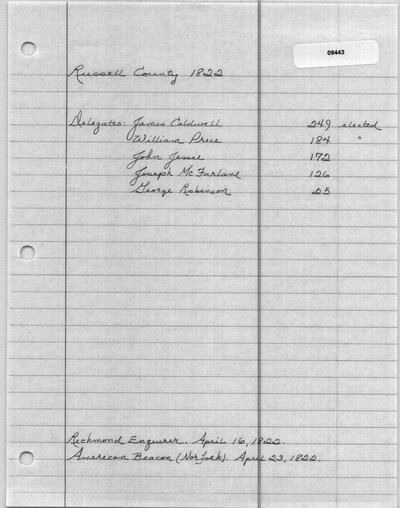 09443
Russell County 1822
Delegates: James Caldwell 249 elected
William Price 184 "
John Jessee 172
Joseph McFarlane 126
George Robinson 25
Richmond Enquirer. April 16, 1822.
American Beacon (Norfolk). April 23, 1822.